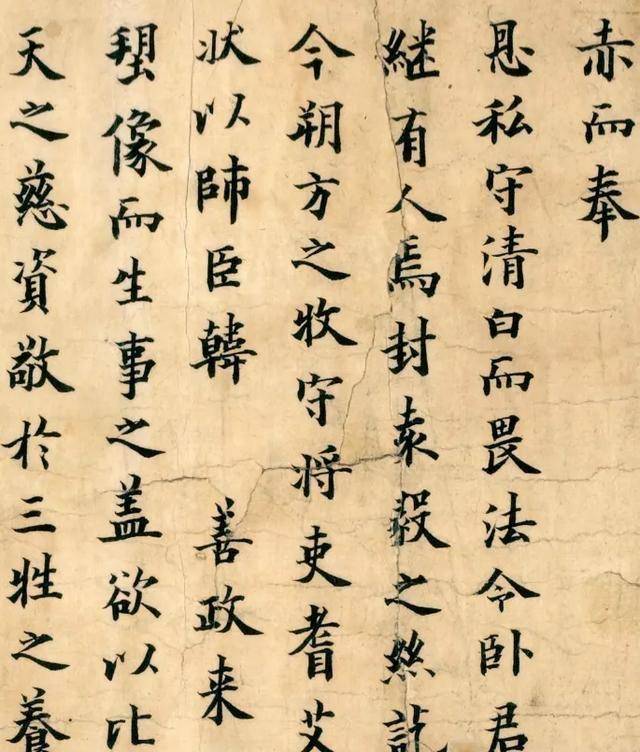 赤而奉
恩私守清白而畏法令卧君
継有人焉封之絲
今朔方之牧守将吏耆艾
状以師臣韓 善政来
像而生事之盖欲以比
天之慈資敬於三牲之養